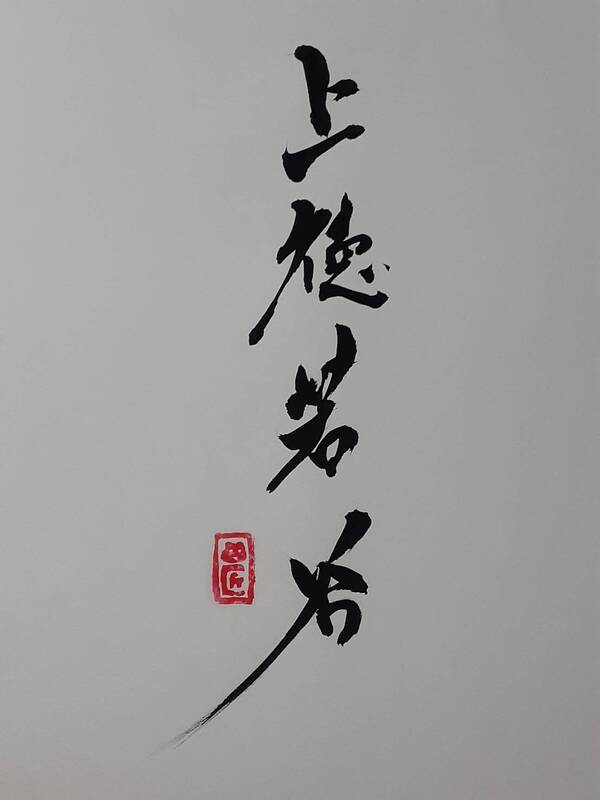 上德若谷